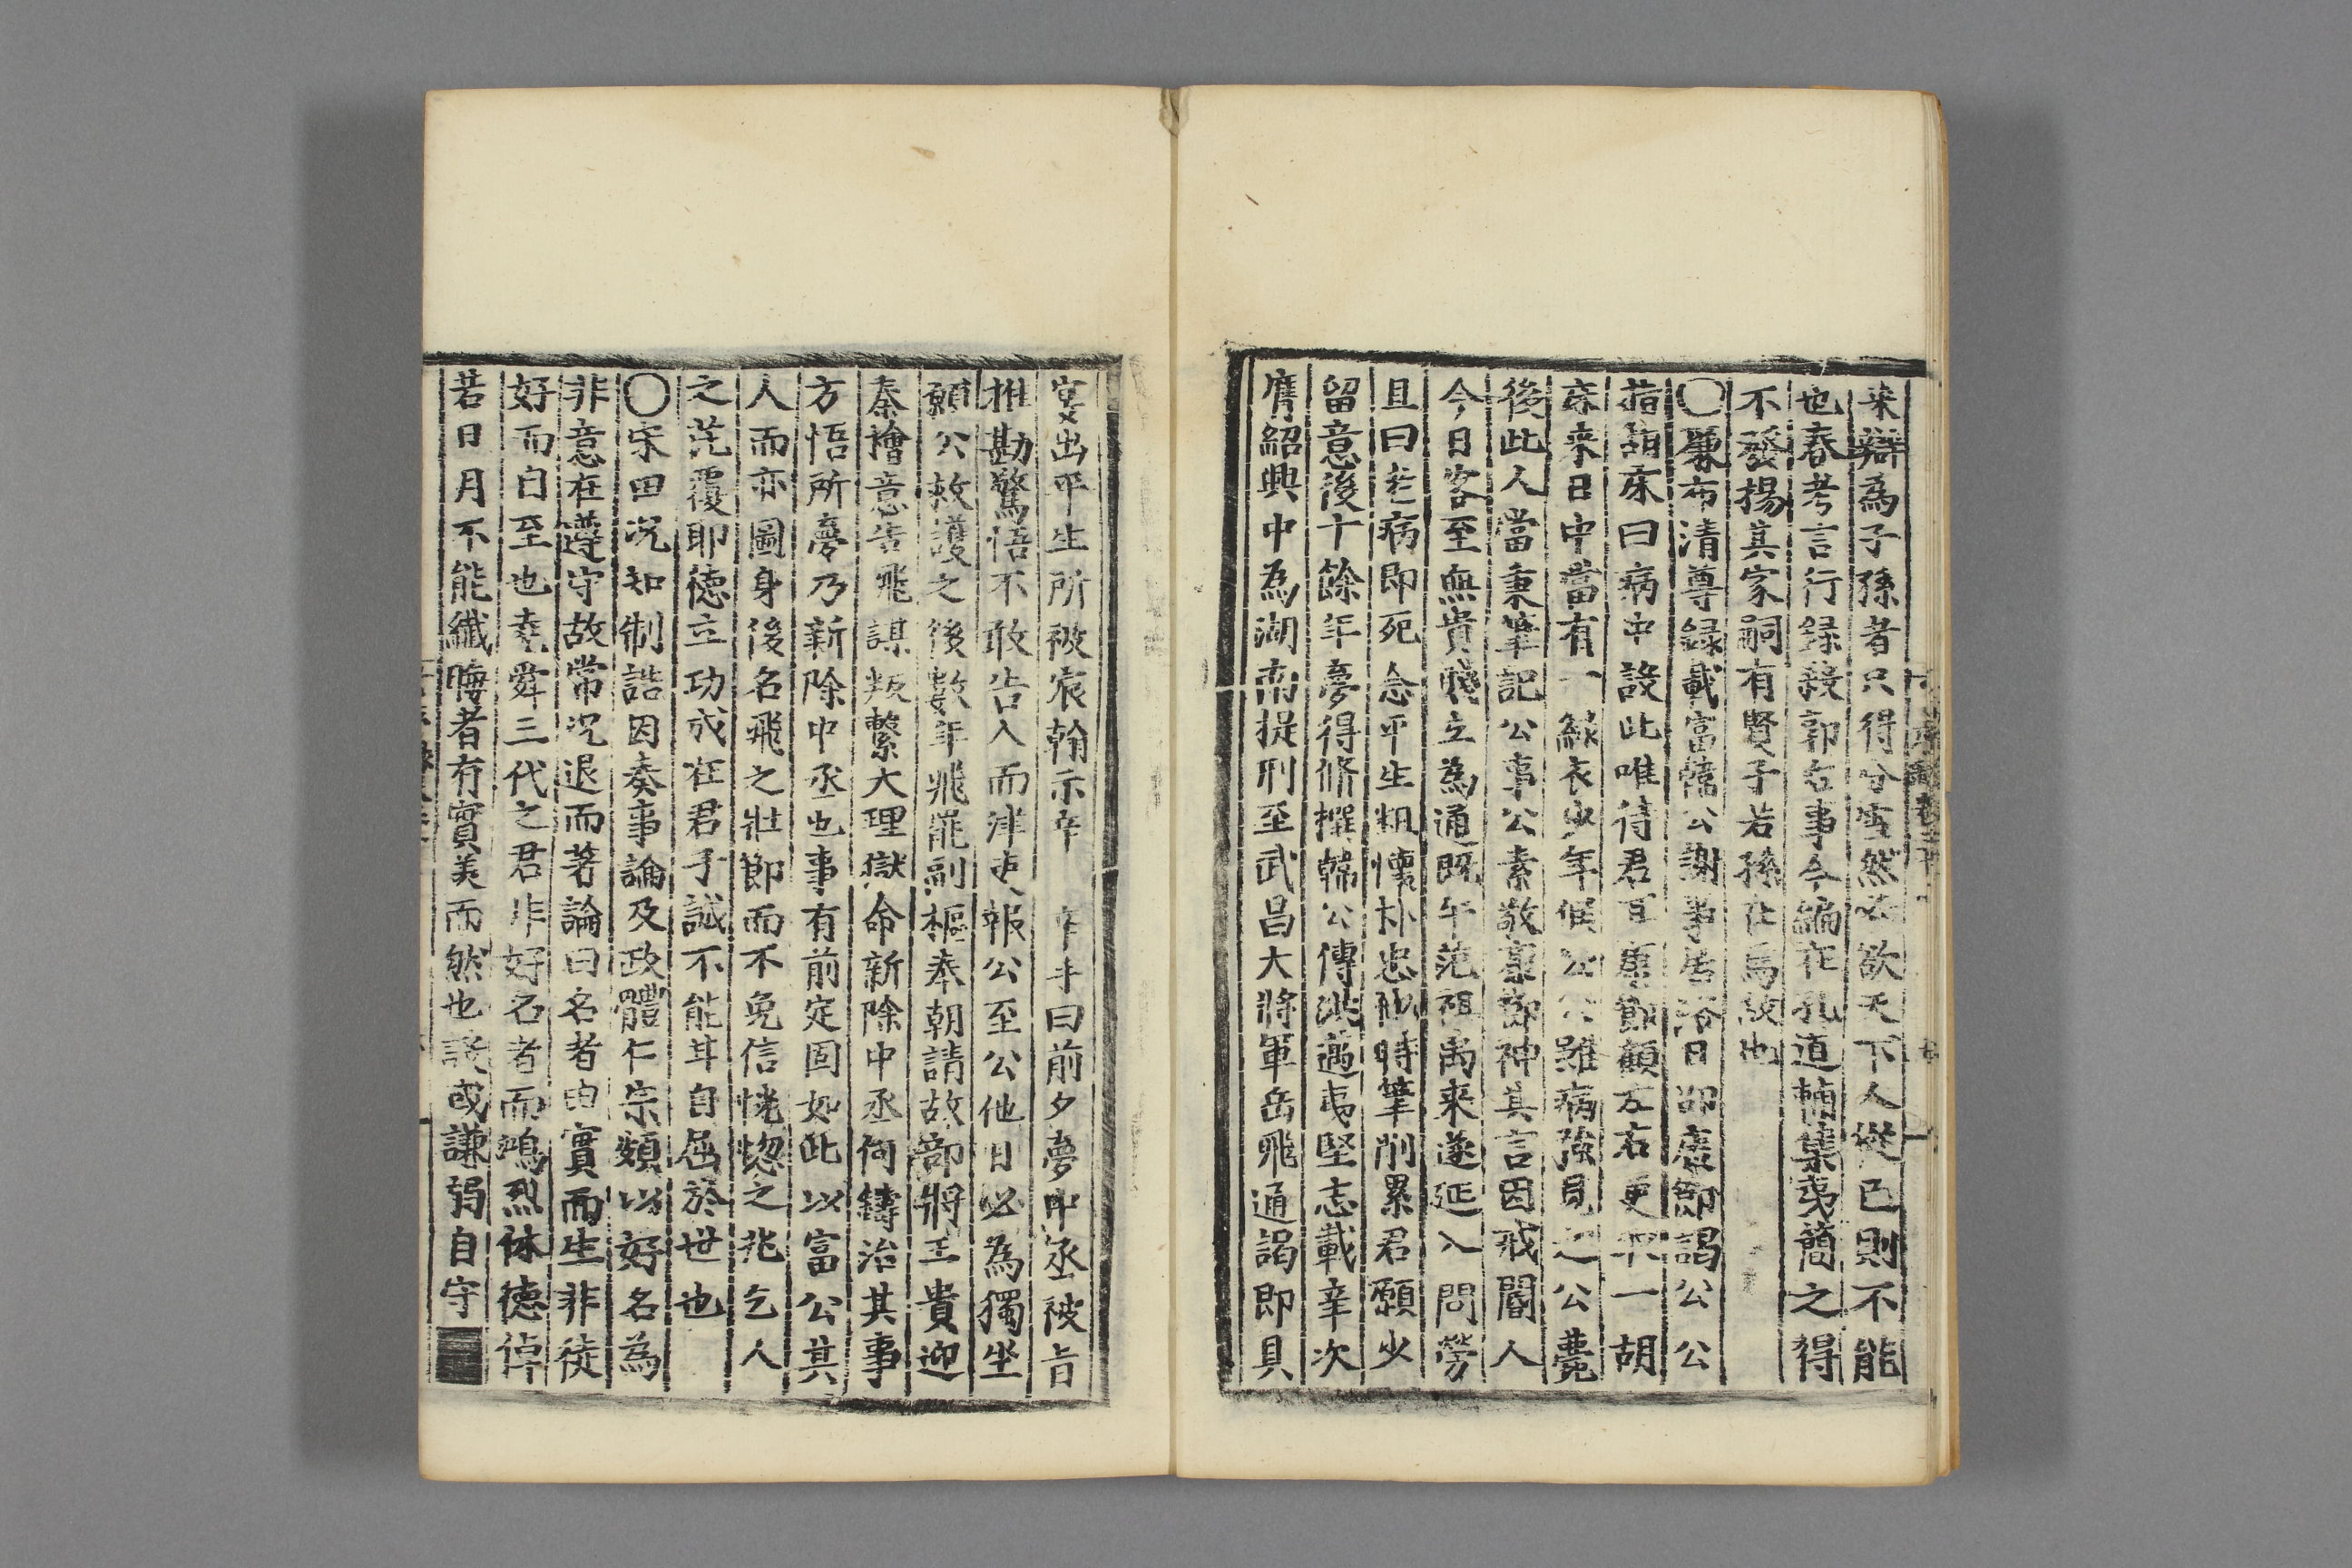 来辯為子孫者只得分雪然必欲天下人從已則不能
也春考言行録殺郭后事今編在孔道輔集夷簡之得
不發揚其家嗣有賢子若孫在焉故也
〇廉布清尊録載富韓公謝事居洛日邵康節謁公公
指胡床曰病中設此唯待君耳康節顧左右更取一胡
床来日中當有一緑衣少年候公公雖病強見之公薨
後此人當秉筆記公事公素敬康節神其言因戒閽人
今日客至無貴賤立為通既午范祖禹来遂延入問勞
且曰老病即死念平生粗懷朴忠他時筆削累君願少
留意後十餘年夢得修撰韓公傳洪邁夷堅志載辛次
膺紹興中為湖南提刑至武昌大將軍岳飛通謁即具
宴出平生所被宸翰示辛 辛手曰前夕夢中丞被旨
推勘驚悟不敢告入而津吏報公至公他日必為獨坐
願公救護之後數年飛罷副樞奉朝請故部將王貴迎
秦檜意告飛謀叛繫大理獄命新除中丞何鑄治其事
方悟所夢乃新除中丞也事有前定固如此以富公其
人而亦圖身後名飛之壯節而不免信恍惚之兆乞人
之芘覆耶德立功成在君子誠不能甘自屈於世也
〇宋田况知制誥因奏事論及政體仁宗頗以好名為
非意在遵守故常况退而著論曰名者由實而生非徒
好而自至也堯舜三代之君非好名者而鴻烈休德倬
若日月不能纖晦者有實美而然也設或謙弱自守